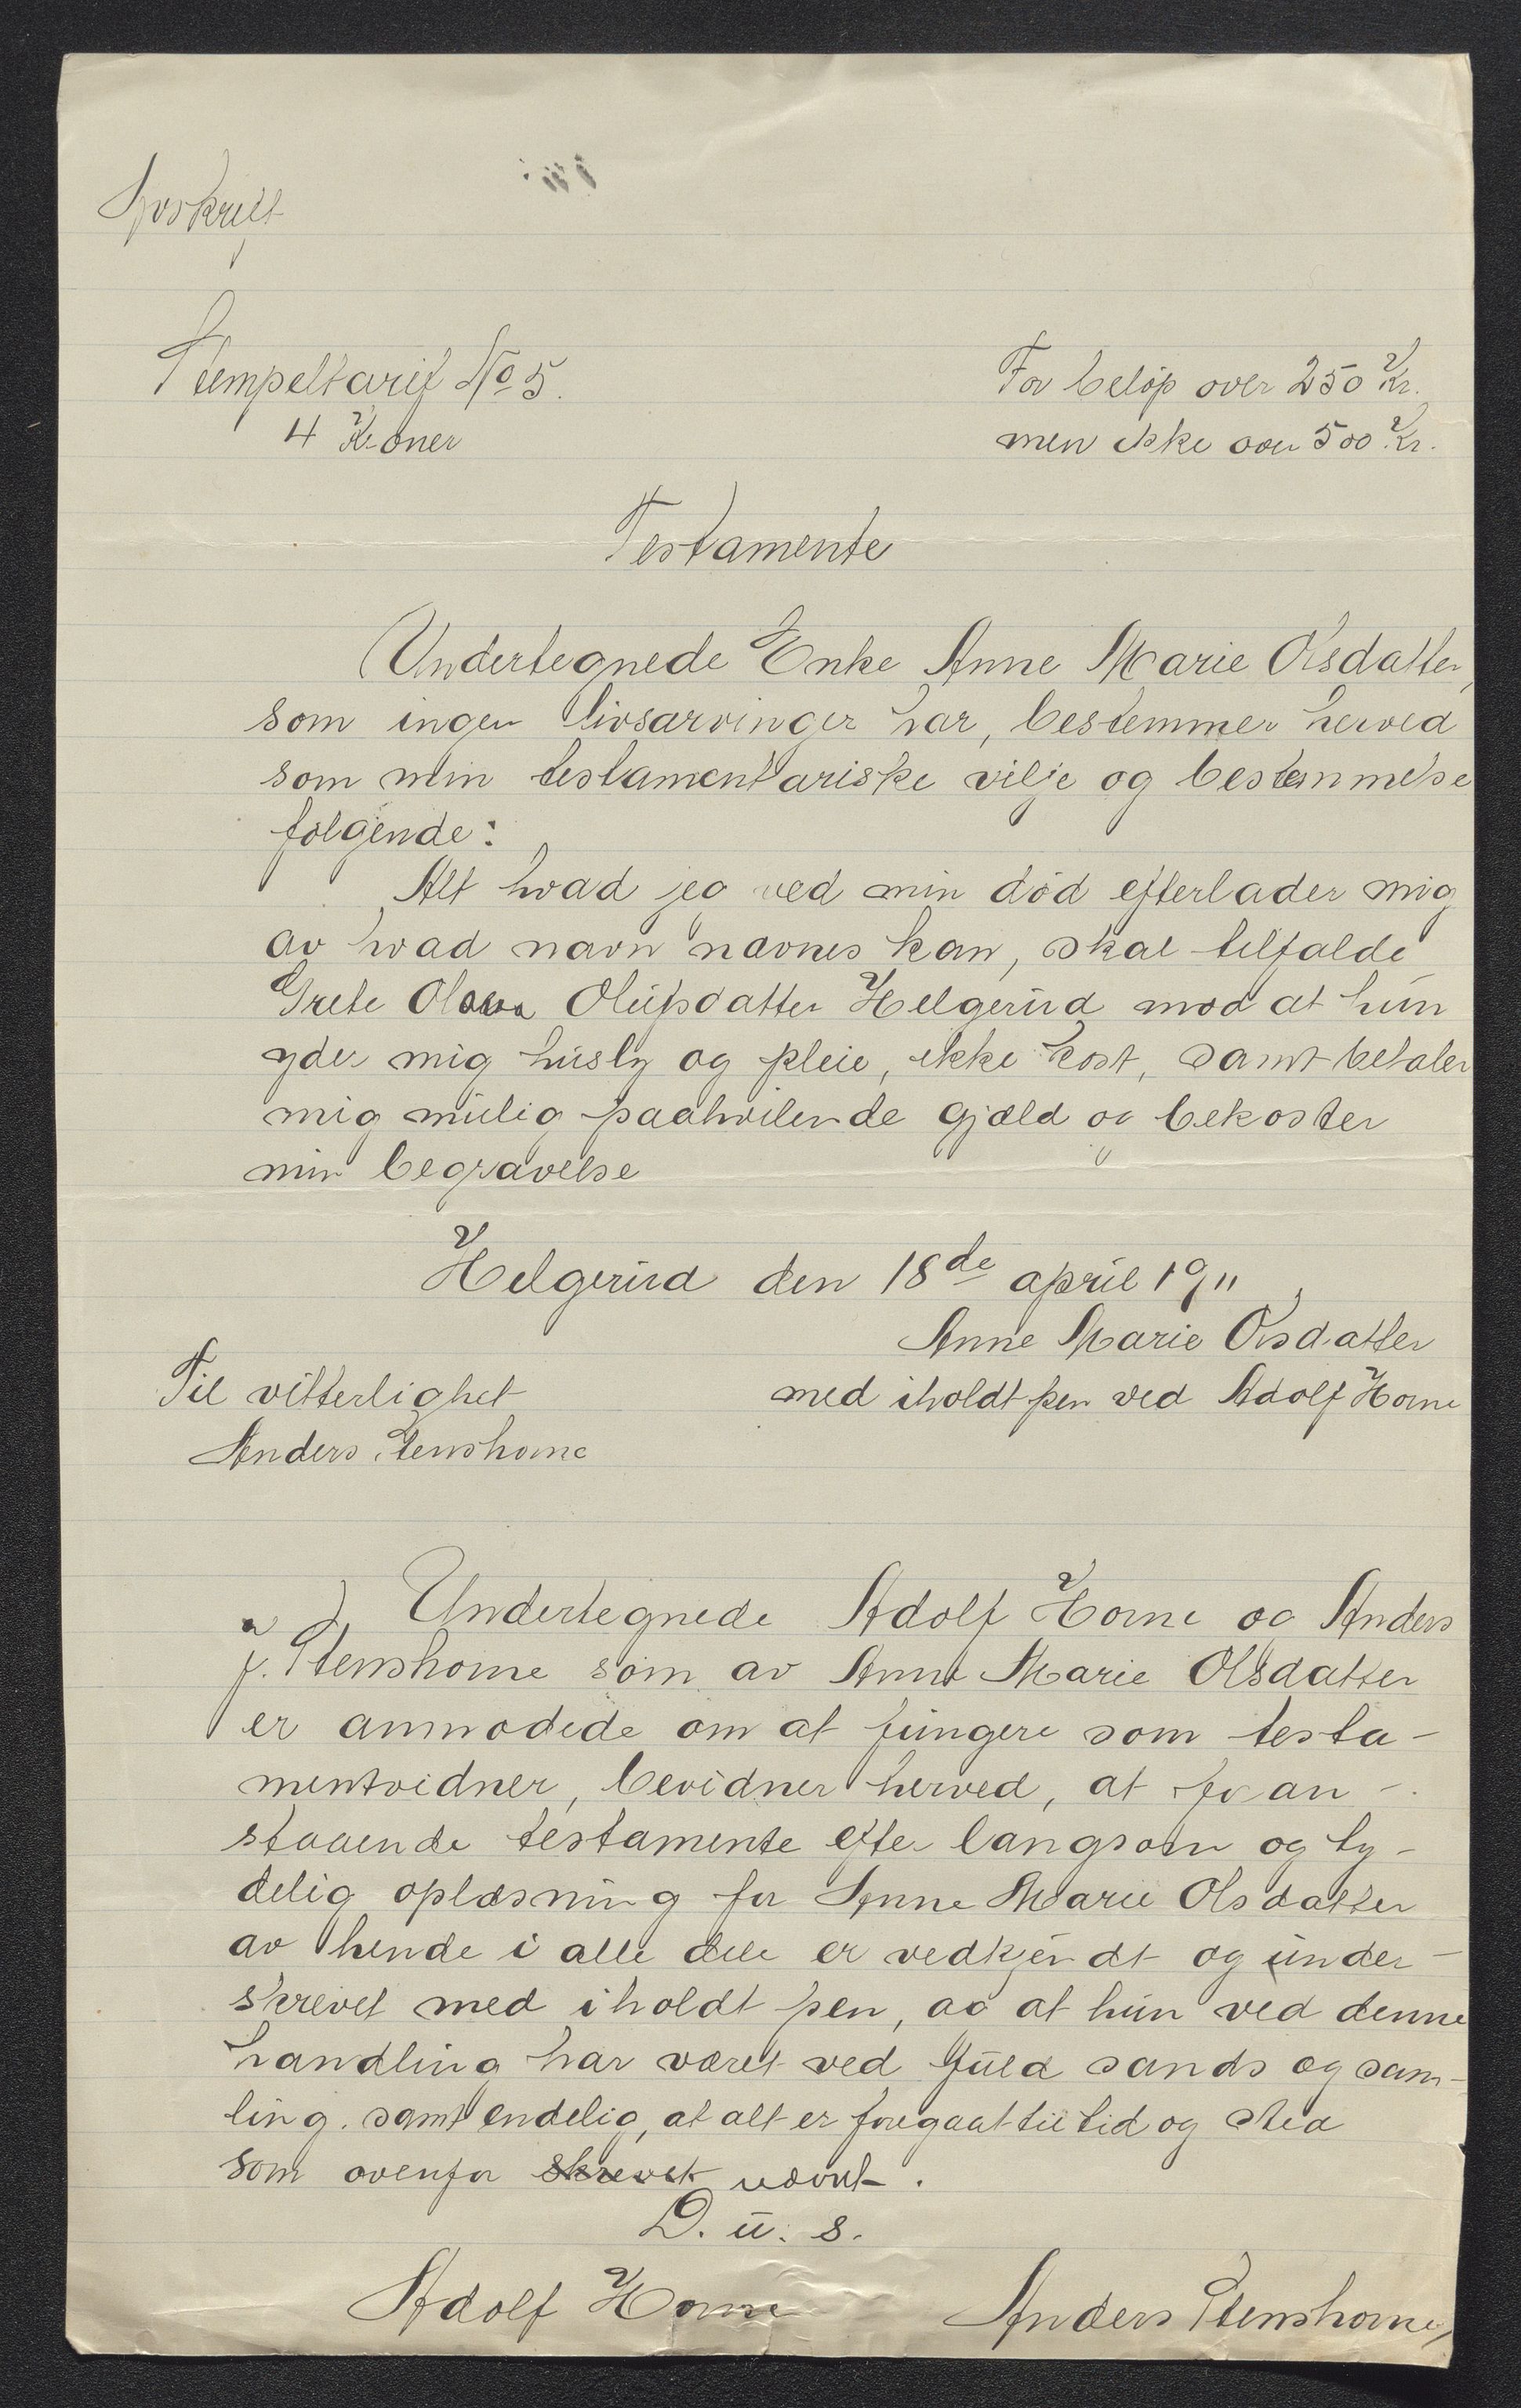 Avskrift
Stempeltarif No 5.
4 Kroner
For beløp over 250 Kr.
men ikke over 500 Kr.
Testamente
Undertegnede Enke Anne Marie Olsdatter,
som ingen livsarvinger har, bestemmer herved
som min testamentariske vilje og bestemmelse
følgende:
Alt hvad jeg ved min död efterlader mig
av hvad navn nævnes kan, skal tilfalde
Grete Olava Olufsdatter Helgerud mod at hun
yder mig husly og pleie, ikke kost, samt betaler
mig mulig paahvilende gjæld og bekoster
min begravelse
Helgerud den 18de april 1911
Anne Marie Olsdatter
med iholdt pen ved Adolf Horne
Til vitterlighet
Anders Stenshorne
Undertegnede Adolf Horne og Anders
J. Stenshorne som av Anne Marie Olsdatter
er anmodede om at fungere som testa-
mentvidner, bevidner herved, at foran-
staaende testamente efter langsom og ty-
delig oplæsning for Anne Marie Olsdatter
av hende i alle dele er vedkjendt og under-
skrevet med iholdt pen, og at hun ved denne
handling har været ved fuld sands og sam-
ling. samt endelig, at alt er foregaat til tid og sted
som ovenfor skrevet nævnt.
D. u. s.
Adolf Horne
Anders Stenshorne